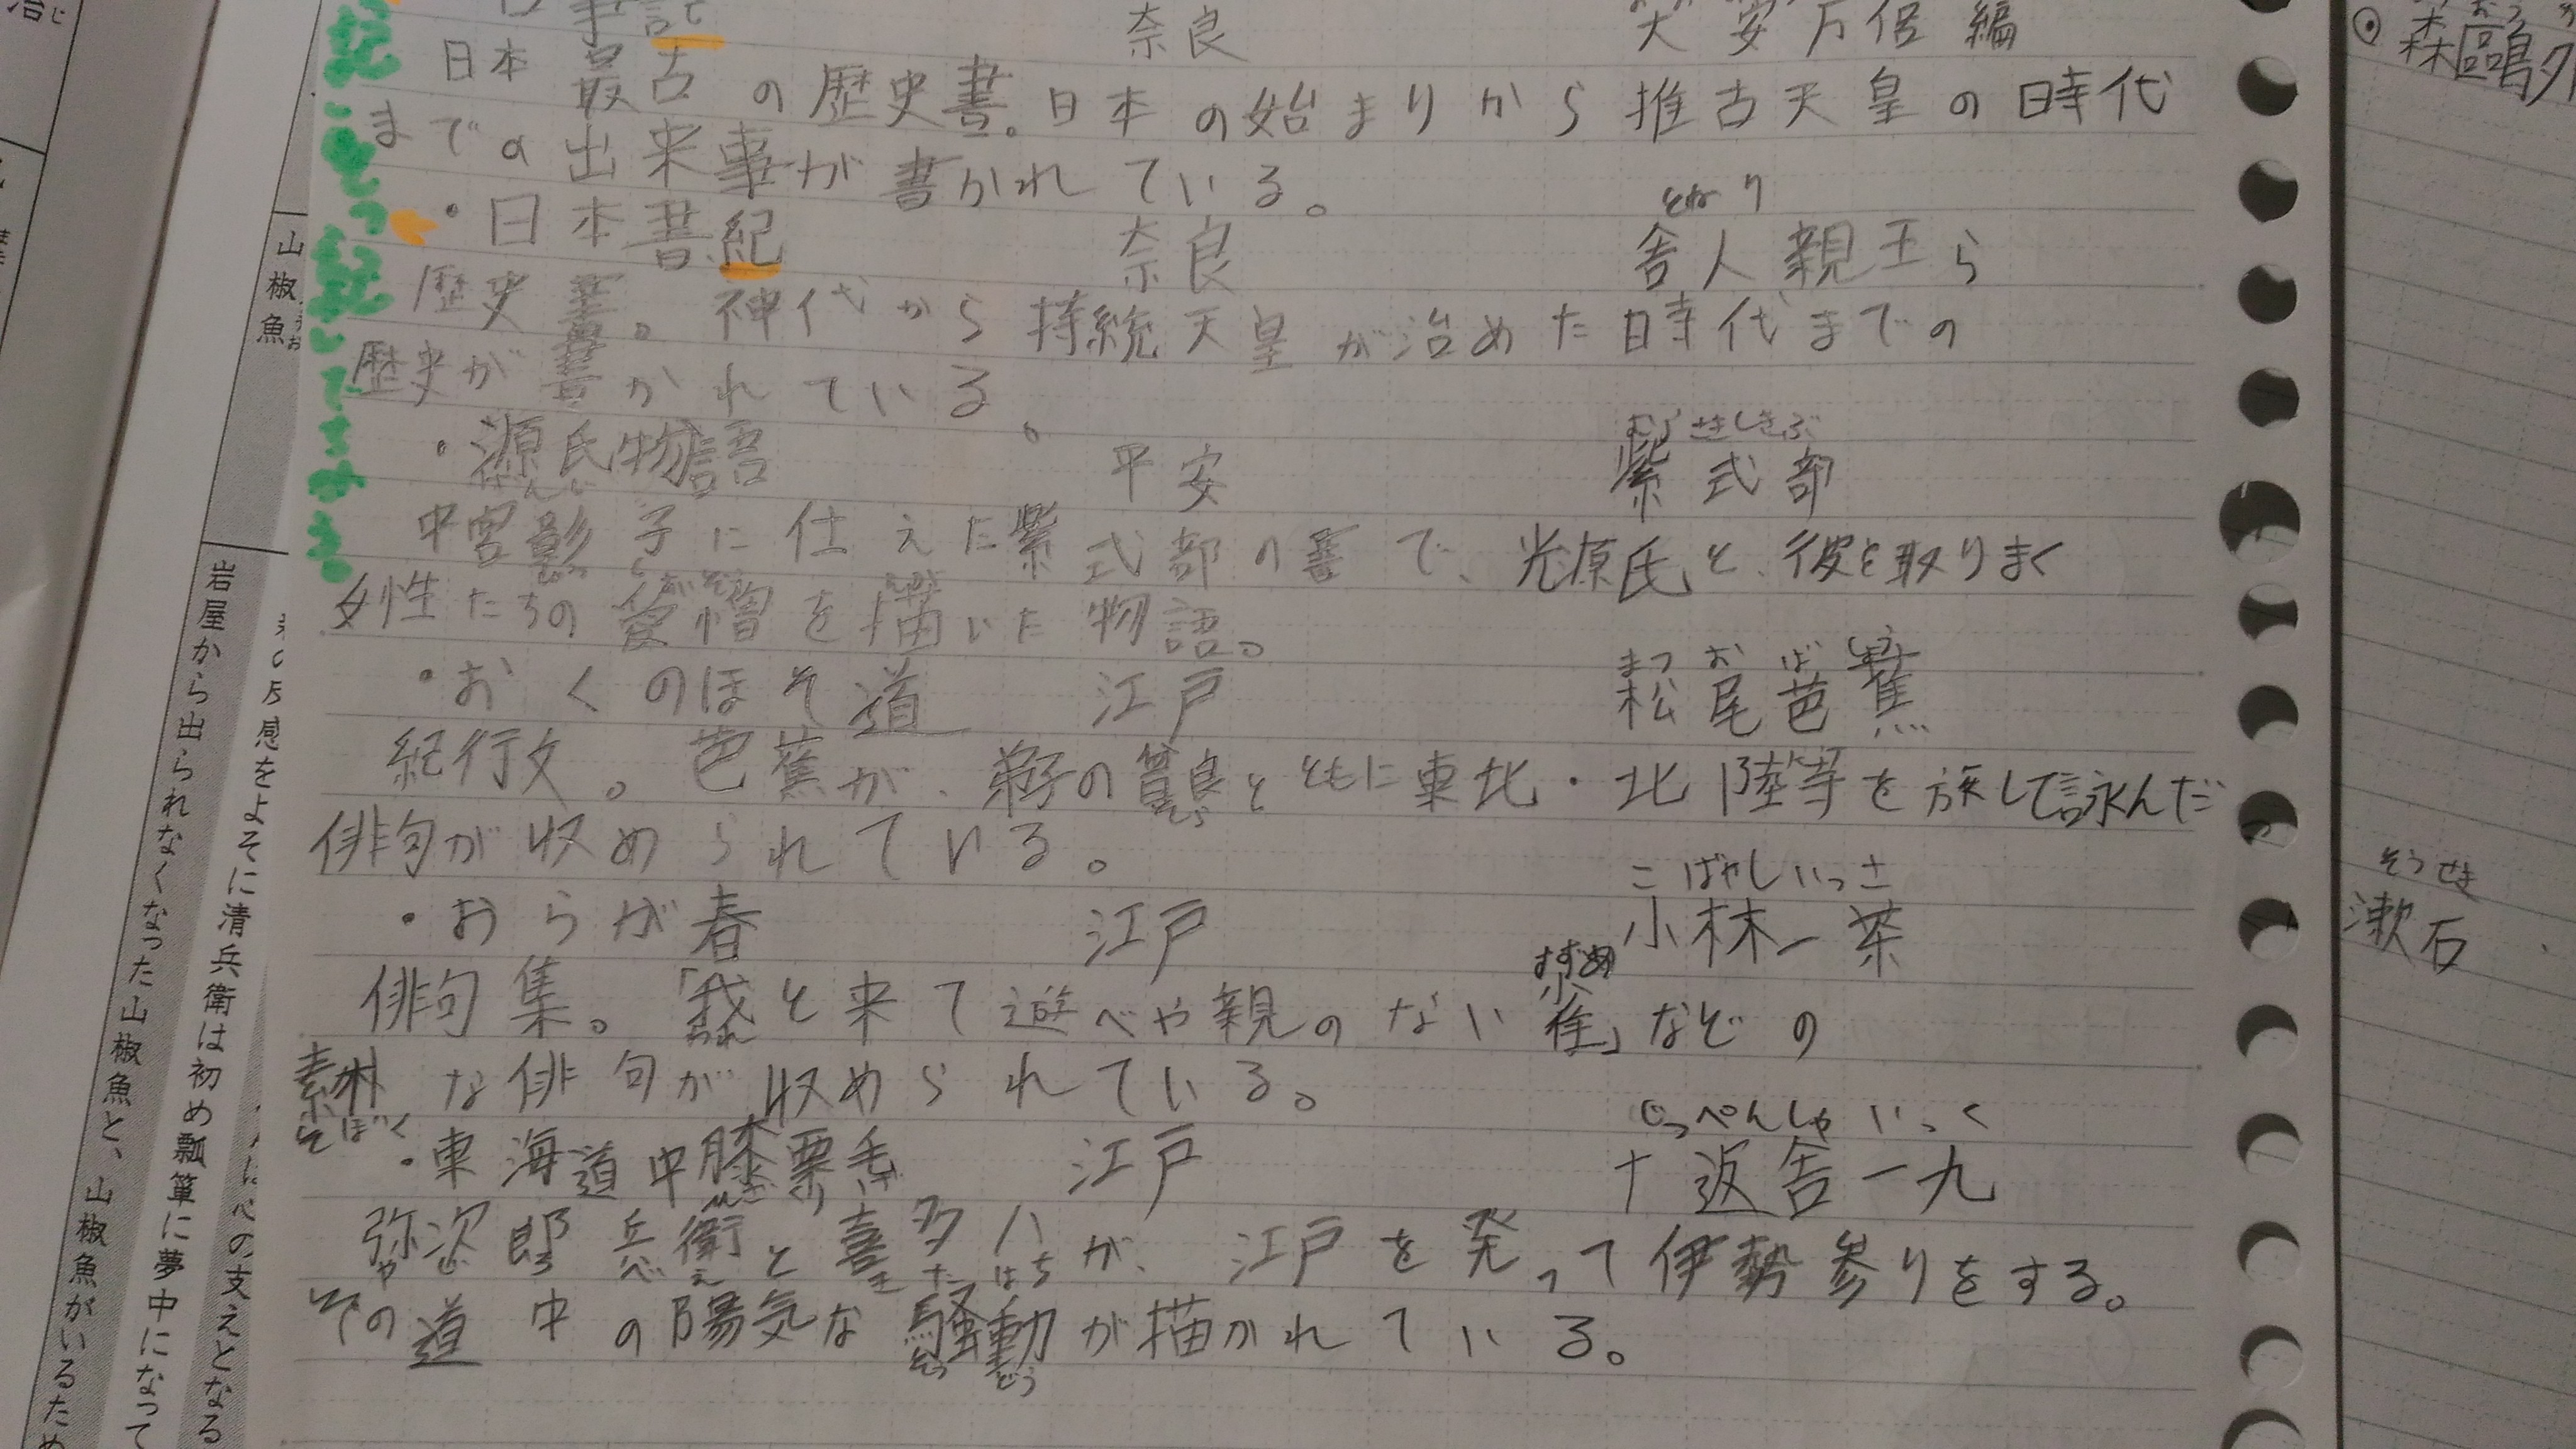 奈良
太安万侶編
日本最古の歴史書。日本の始まりから推古天皇の時代
までの出来事が書かれている。
とねり
・日本書紀 奈良 舎人親王ら
歴史書。神代から持統天皇が治めた時代までの
歴史が書かれている。
むらさきしきぶ
・源氏物語 平安 紫式部
げんじ
中宮彰子に仕えた紫式部の書で、光原氏と、彼を取りまく
女性たちの愛憎を描いた物語。
まつおばしょう
・おくのほそ道 江戸 松尾芭蕉
紀行文。芭蕉が、弟子の曽良とともに東北・北陸等を旅して詠んだ
俳句が収められている。
こばやしいっさ
・おらが春 江戸 小林一茶
すずめ
俳句集。「我と来て遊べや親のない雀」などの
われ
素朴な俳句が収められている。
そぼく
じっぺんしゃいっく
・東海道中膝栗毛 江戸 十返舎一九
ひざくりげ
弥次郎兵衛と喜多八が、江戸を発って伊勢参りをする。
やじろべえ きたはち
その道中の陽気な騒動が描かれている。
そうどう
森鷗外
そうせき
漱石
山椒魚
岩屋から出られなくなった山椒魚と、山椒魚がいるため
感をよそに清兵衛は初め瓢箪に夢中になって
心の支えとなる